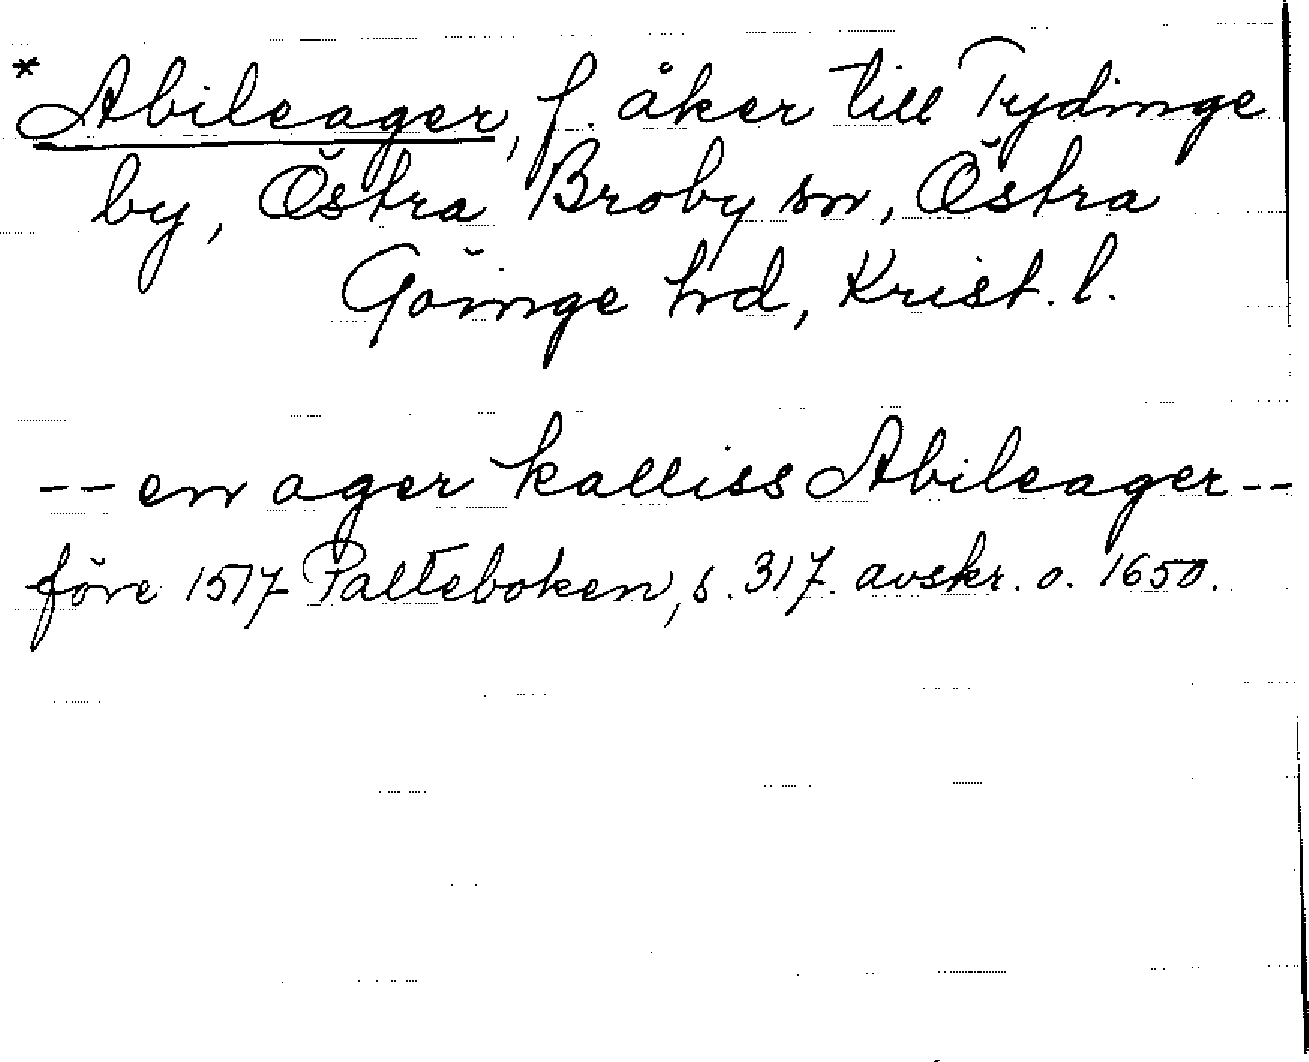 *Abileager, f. åker till Tydinge
by, Östra Broby sn, Östra
Göinge hd, Krist. l.
-- en ager kalliss Abileager --
före 1517 Palteboken, s. 317. avskr. o. 1650.